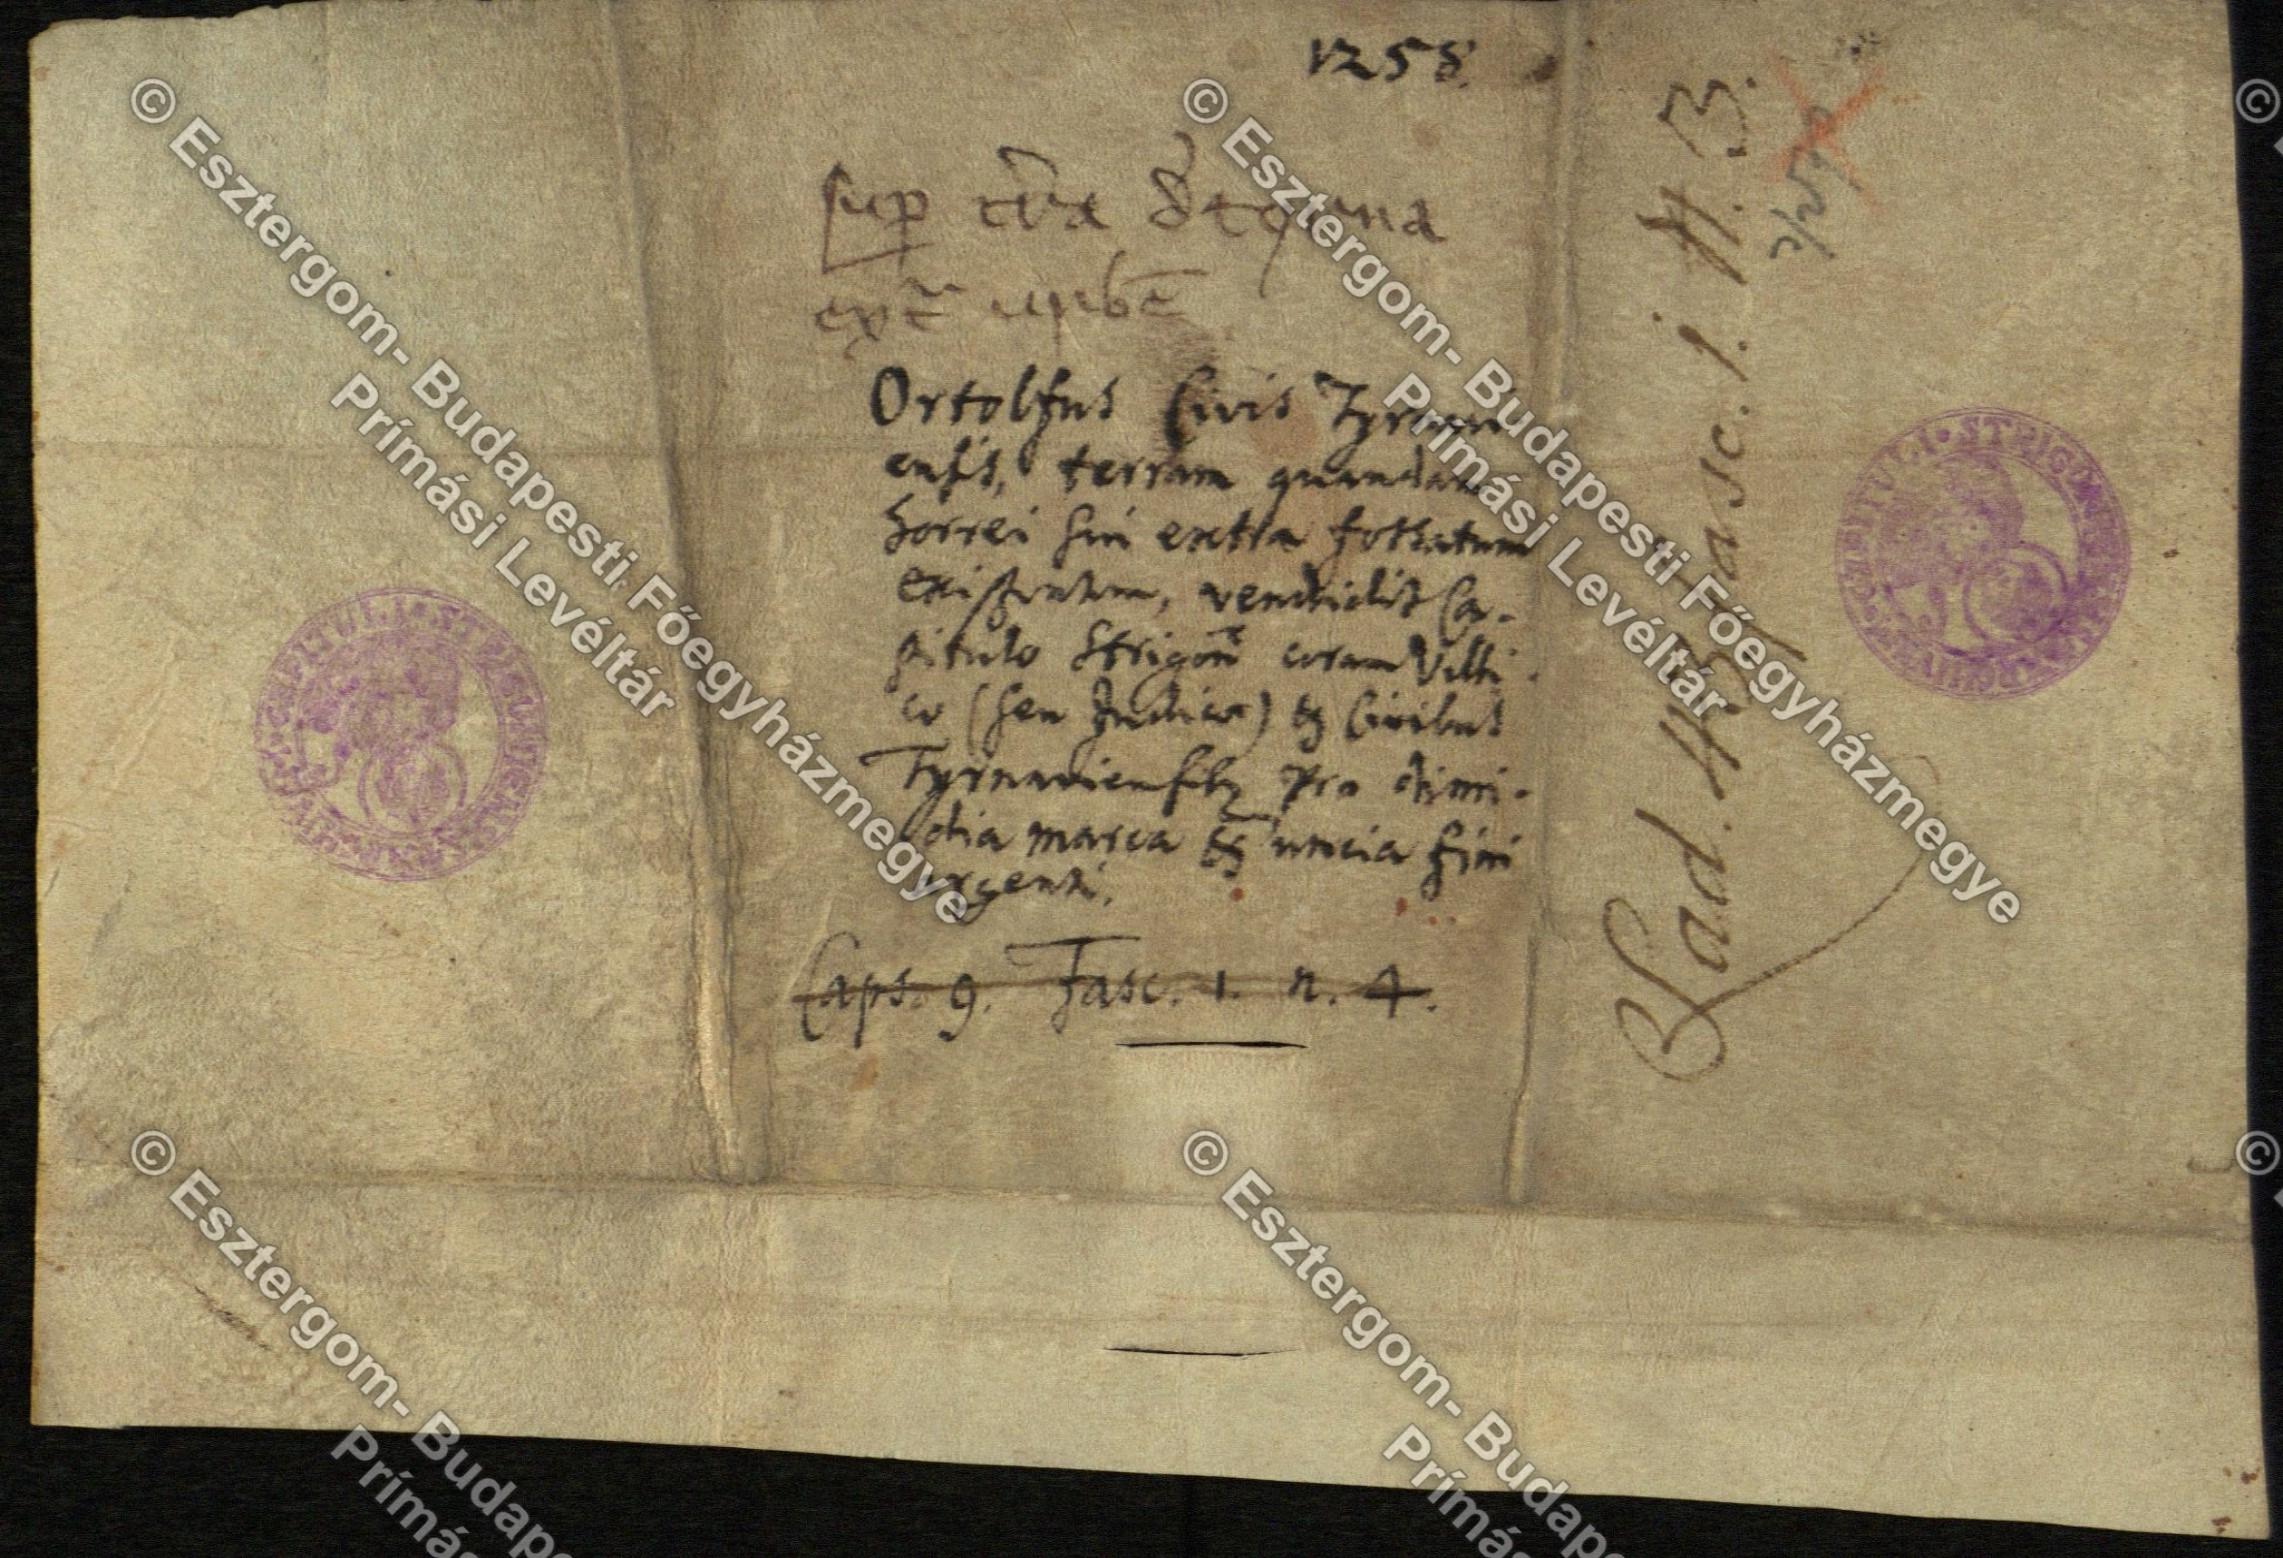 1258.
sup t̄ra d̄ tyrna
ext̄ urbē
Ortolfus Civis Tyrnavi
ensis, terram quandam
horrei sui extra fossatum
existentem, vendidit Ca-
pitulo Strigoñ coram Villi-
co (seu Judice) et Civibus
Tyrnaviensibꝫ pro dimi-
dia marca et uncia fini
argenti.
Caps. 9. Fasc. 1. n. 4.
Lad. Fasc. 1. N. 3.
CAPITULI STRIGONIENSIS
CAPITULI STRIGONIENSIS
© Esztergom- Budapesti Főegyházmegye
Prímási Levéltár
© Esztergom- Budapesti Főegyházmegye
Prímási Levéltár
© Esztergom- Budapes
Prímás
© Esztergom- Budapes
Prímás